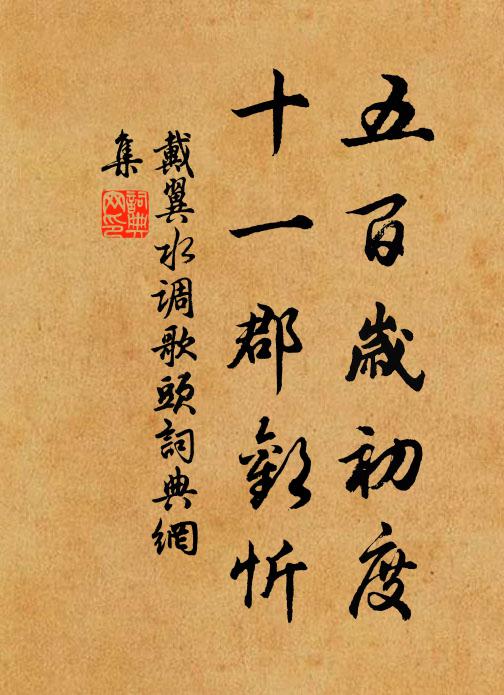 五百歲初度
十一郡歡忻
戴翼水调歌頭詞典網
集
詞典網印